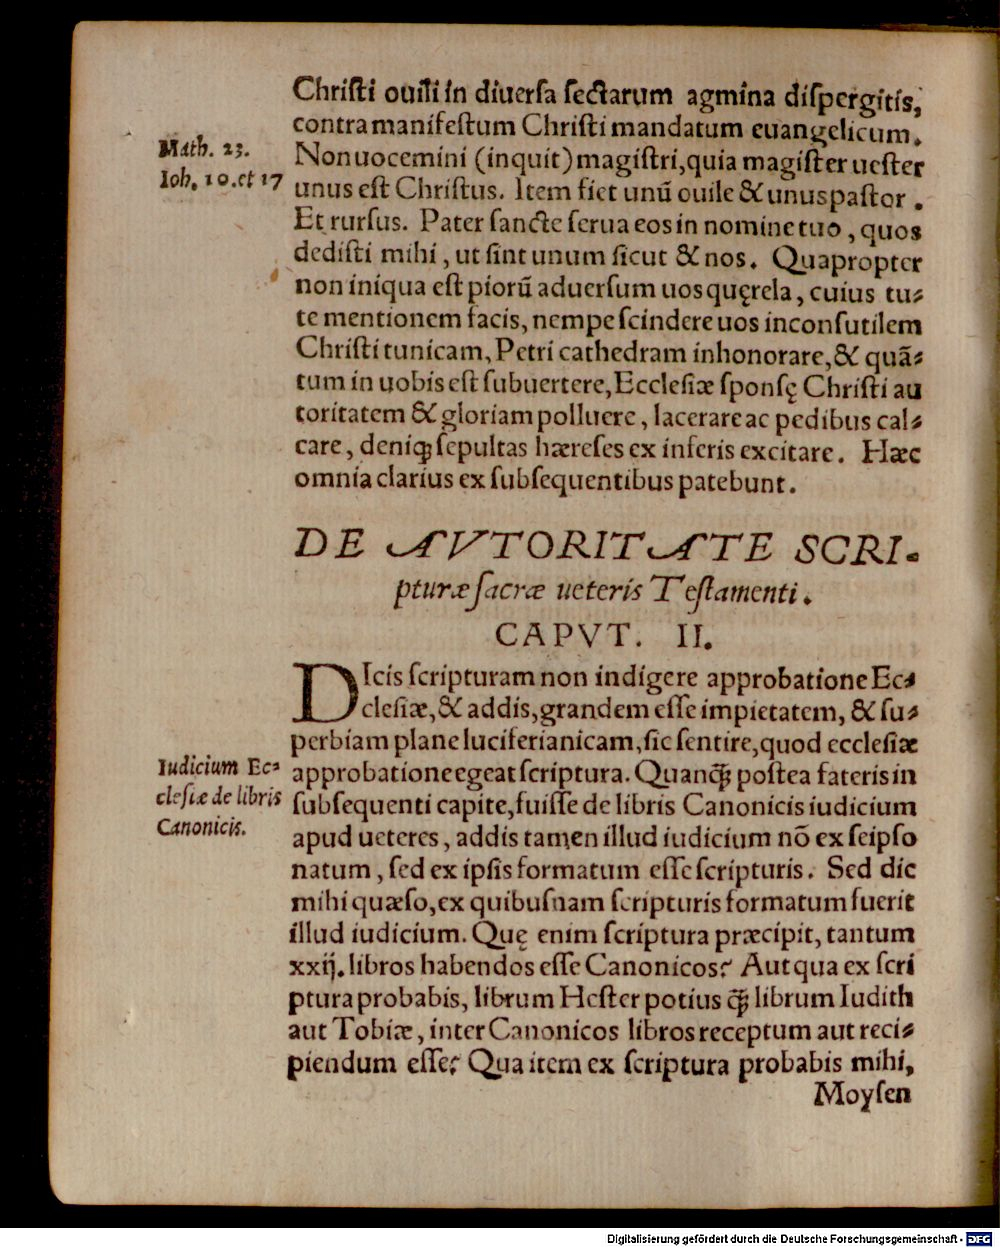 Chriſti ouili in diuerſa ſectarum agmina diſpergitis,
contra manifeſtum Chriſti mandatum euangelicum.
Math. 23.
Non uocemini (inquit) magiſtri, quia magiſter ueſter
Ioh, 10. et 17
unus eſt Chriſtus. Item fiet unũ ouile & unus paſtor.
Et rurſus. Pater ſancte ſerua eos in nomine tuo, quos
dediſti mihi, ut ſint unum ſicut & nos. Quapropter
non iniqua eſt piorũ aduerſum uos quęrela, cuius tu⸗
te mentionem facis, nempe ſcindere uos inconſutilem
Chriſti tunicam, Petri cathedram inhonorare, & quã⸗
tum in uobis eſt ſubuertere, Eccleſiæ ſponſę Chriſti au
toritatem & gloriam polluere, lacerare ac pedibus cal⸗
care, deniqꝫ ſepultas hæreſes ex inferis excitare. Hæc
omnia clarius ex ſubſequentibus patebunt.
DE AVTORITATE SCRI-
pturæ ſacræ ueteris Teſtamenti.
CAPVT. II.
DIcis ſcripturam non indigere approbatione Ec⸗
cleſiæ, & addis, grandem eſſe impietatem, & ſu⸗
perbiam plane luciferianicam, ſic ſentire, quod eccleſiæ
Iudicium Ec⸗
cleſiæ de libris
Canonicis.
approbatione egeat ſcriptura. Quanq̃ꝫ poſtea fateris in
ſubſequenti capite, fuiſſe de libris Canonicis iudicium
apud ueteres, addis tamen illud iudicium nõ ex ſeipſo
natum, ſed ex ipſis formatum eſſe ſcripturis. Sed dic
mihi quæſo, ex quibuſnam ſcripturis formatum fuerit
illud iudicium. Quę enim ſcriptura præcipit, tantum
xxij. libros habendos eſſe Canonicos? Aut qua ex ſcri
ptura probabis, librum Heſter potius q̃ꝫ librum Iudith
aut Tobiæ, inter Canonicos libros receptum aut reci⸗
piendum eſſe? Qua item ex ſcriptura probabis mihi,
Moyſen
Digitalisierung gefördert durch die Deutsche Forschungsgemeinschaft - DFG